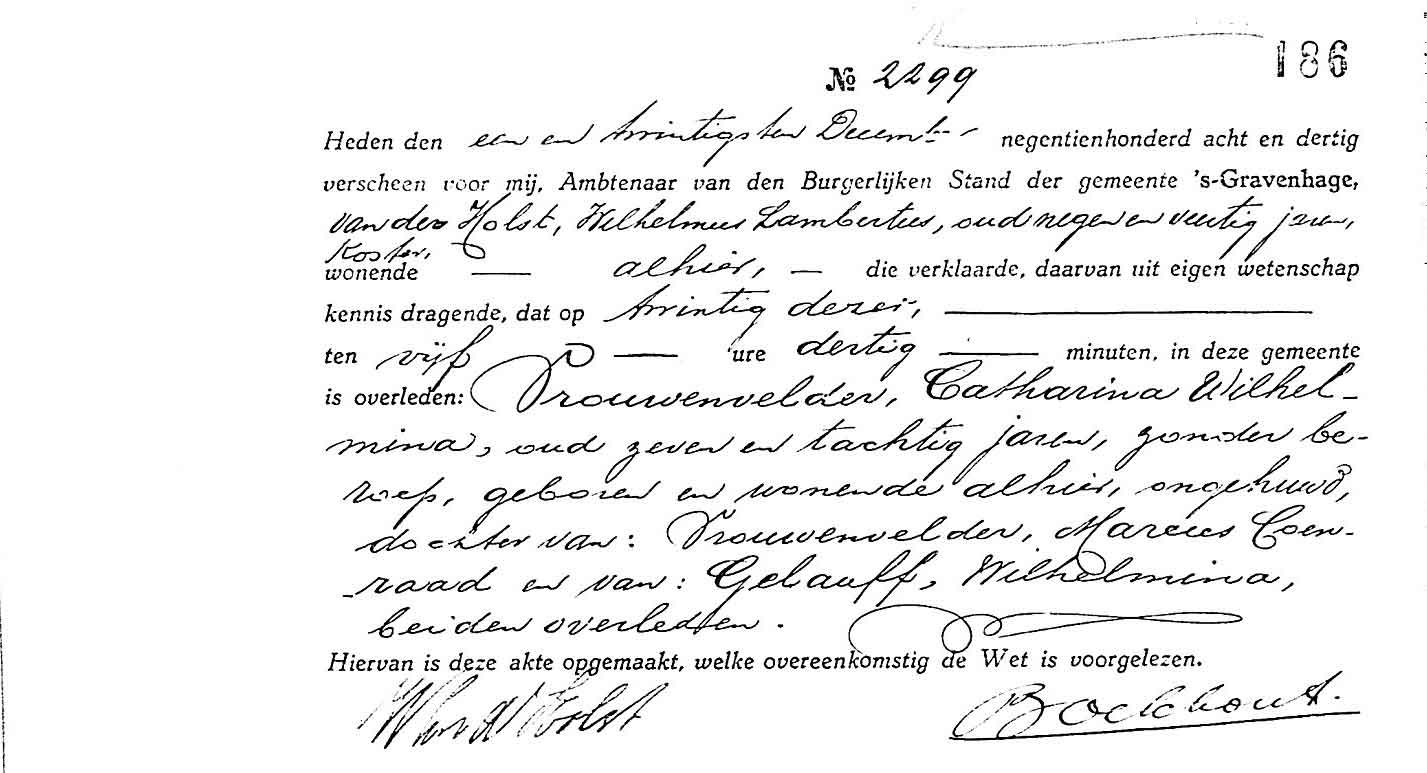 186
№ 2299
Heden den een en twintigsten Decembr negentienhonderd acht en dertig
verscheen voor mij, Ambtenaar van den Burgerlijken Stand der gemeente 's-Gravenhage,
van der Holst, Wilhelmus Lambertus, oud negen en veertig jaren,
Koster,
wonende — alhier, — die verklaarde, daarvan uit eigen wetenschap
kennis dragende, dat op twintig dezer, —
ten vijf — ure dertig — minuten, in deze gemeente
is overleden: Vrouwenvelder, Catharina Wilhel-
mina, oud zeven en tachtig jaren, zonder be-
roep, geboren en wonende alhier, ongehuwd,
dochter van: Vrouwenvelder, Marcus Coen-
raad en van: Gelauff, Wilhelmina,
beiden overleden.
Hiervan is deze akte opgemaakt, welke overeenkomstig de Wet is voorgelezen.
Holst Boekhout.